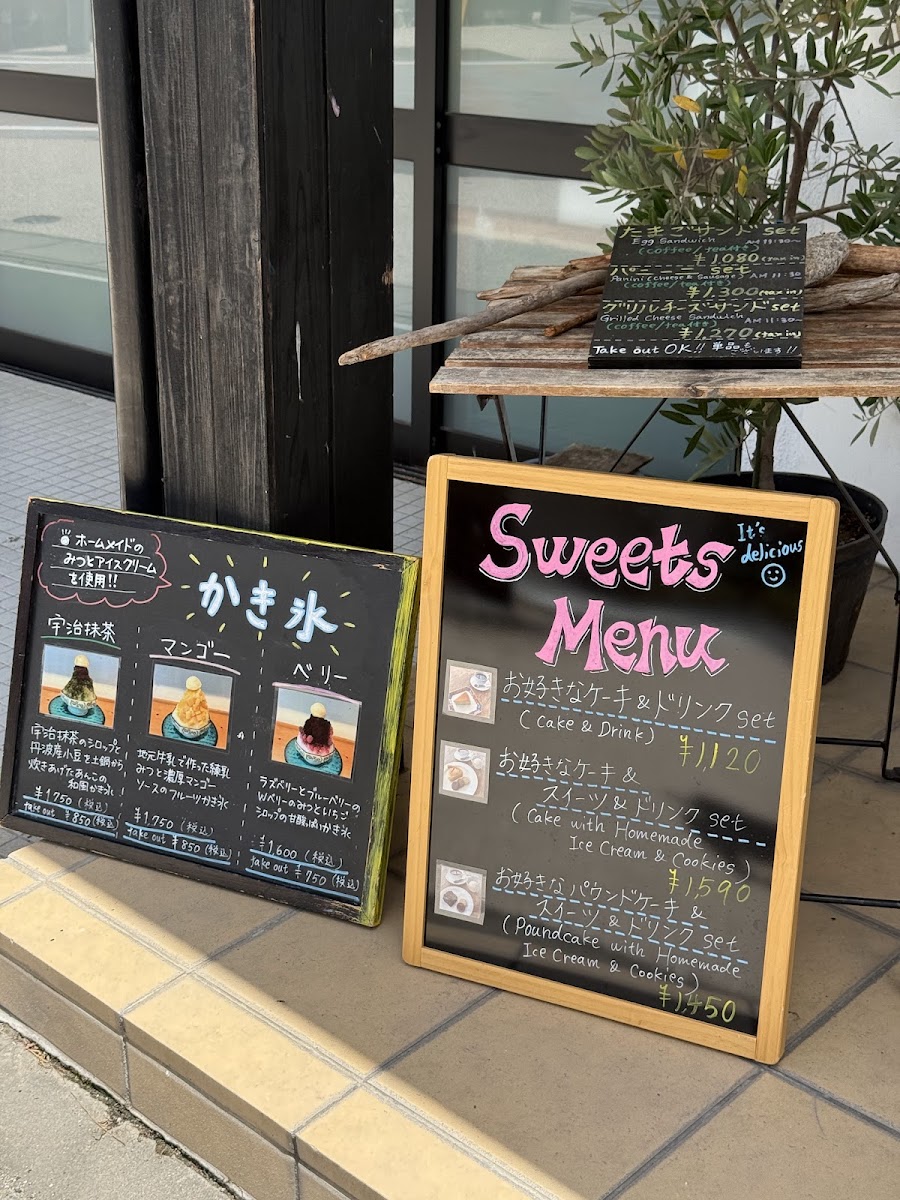 たまごサンドset
Egg Sandwich AM 11:30~
(coffee/tea付き)
¥1,080(tax in)
パニーニ set
Panini (Cheese & Sausage) AM 11:30
(coffee/tea付き)
¥1,300(tax in)
グリルチーズサンドset
Grilled Cheese Sandwich AM 11:30~
(coffee/tea付き)
¥1,270(tax in)
Take out OK!! 単品もございます!!
ホームメイドの
みつとアイスクリーム
を使用!!
かき氷
宇治抹茶
宇治抹茶のシロップと
丹波産小豆を土鍋から
炊きあげたあんこの
和風かき氷
¥1,750 (税込)
take out ¥850(税込)
マンゴー
地元牛乳で作った練乳
みつと濃厚マンゴー
ソースのフルーツかき氷
¥1,750 (税込)
take out ¥850(税込)
ベリー
ラズベリーとブルーベリーの
Wベリーのみつといちご
シロップの甘酸っぱいかき氷
¥1,600 (税込)
take out ¥750(税込)
Sweets
Menu
It's
delicious
お好きなケーキ&ドリンクset
(Cake & Drink)
¥1,120
お好きなケーキ &
スイーツ & ドリンク set
(Cake with Homemade
Ice Cream & Cookies)
¥1,590
お好きな パウンドケーキ &
スイーツ & ドリンク set
(Poundcake with Homemade
Ice Cream & Cookies)
¥1,450